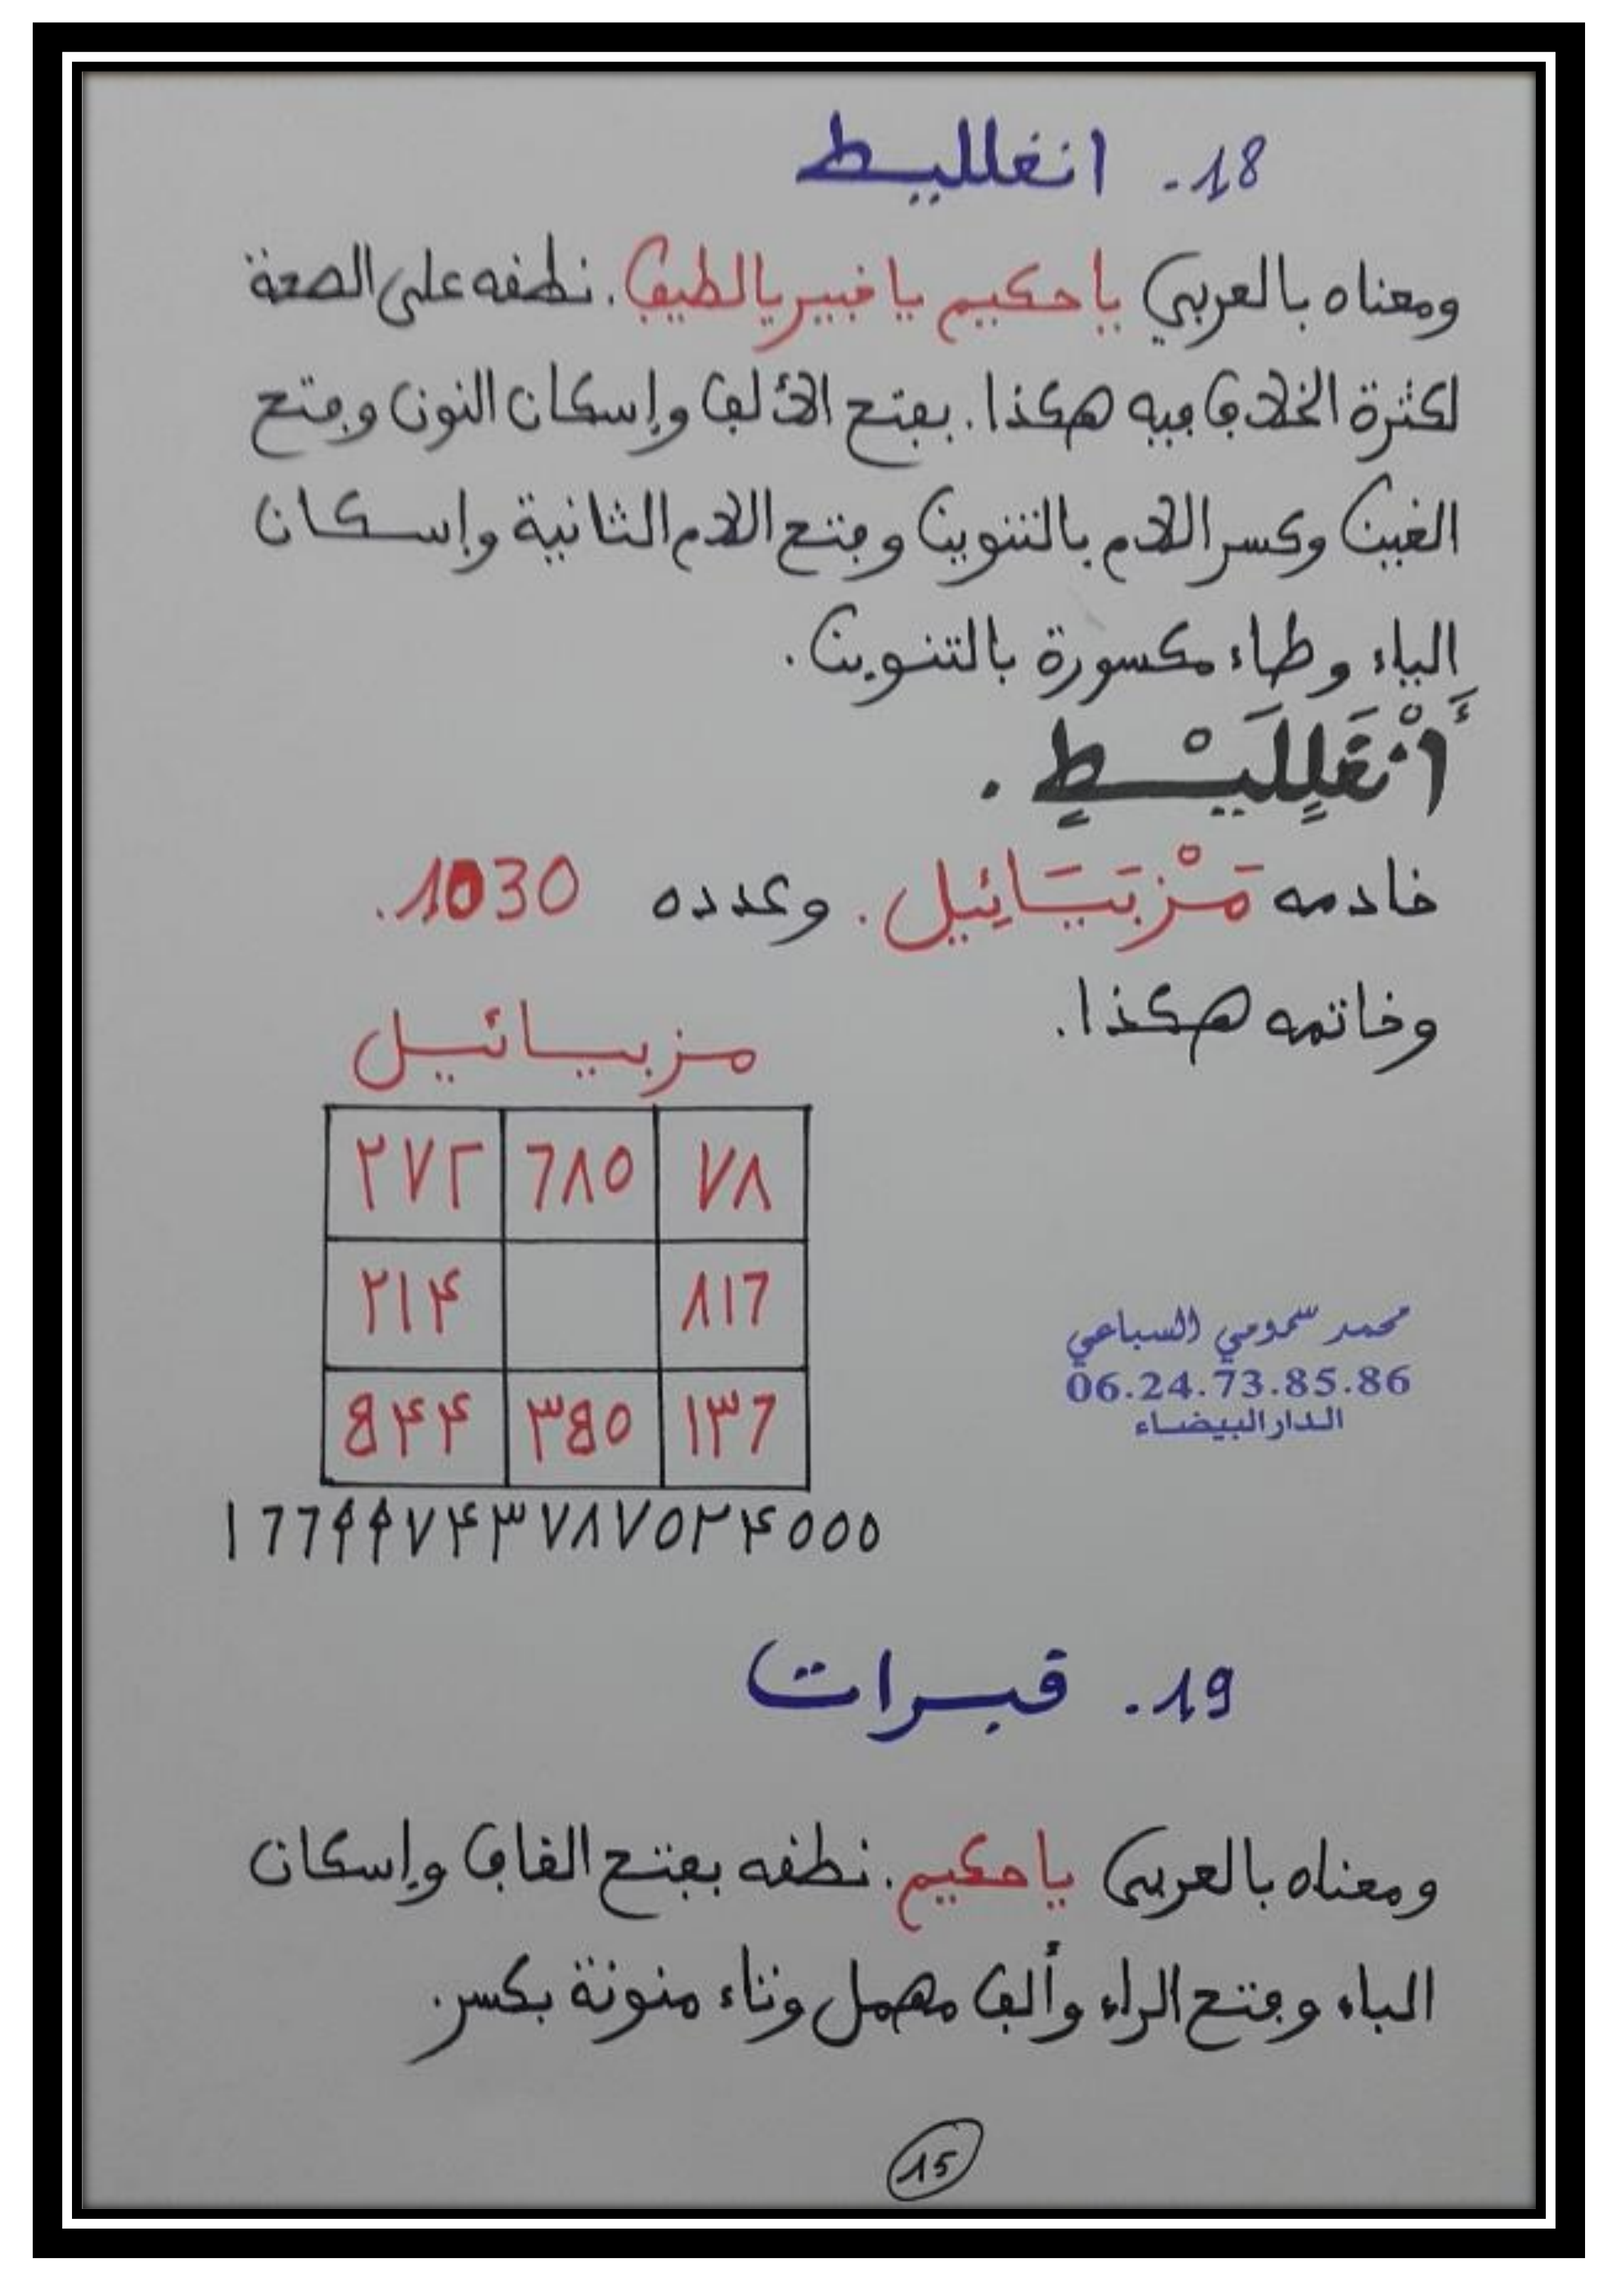 18. انغلليط
ومعناه بالعربي ياحكيم يا خبير يالطيف. نطقه على الصحة
لكثرة الخلاف فيه هكذا. بفتح الألف وإسكان النون وفتح
الغين وكسر اللام بالتنوين وفتح اللام الثانية وإسكان
الياء وطاء مكسورة بالتنوين.
أَنْغَلٍلَيْطٍ.
خادمه مَزْبَيَائِيل. وعدده 1030.
وخاتمه هكذا.
مزبيائيل
٢٧٢ ٦٨٥ ٧٨
٢١٤ ٨١٦
844 ٣8٥ ١٣٦
١٦٦٩٩٧٤٣٧٨٧٥٢٤٥٥٥
محمد سمومي السباعي
06.24.73.85.86
الدار البيضاء
19. قبرات
ومعناه بالعربي ياحكيم. نطقه بفتح القاف وإسكان
الباء وفتح الراء وألف مهمل وتاء منونة بكسر.
15